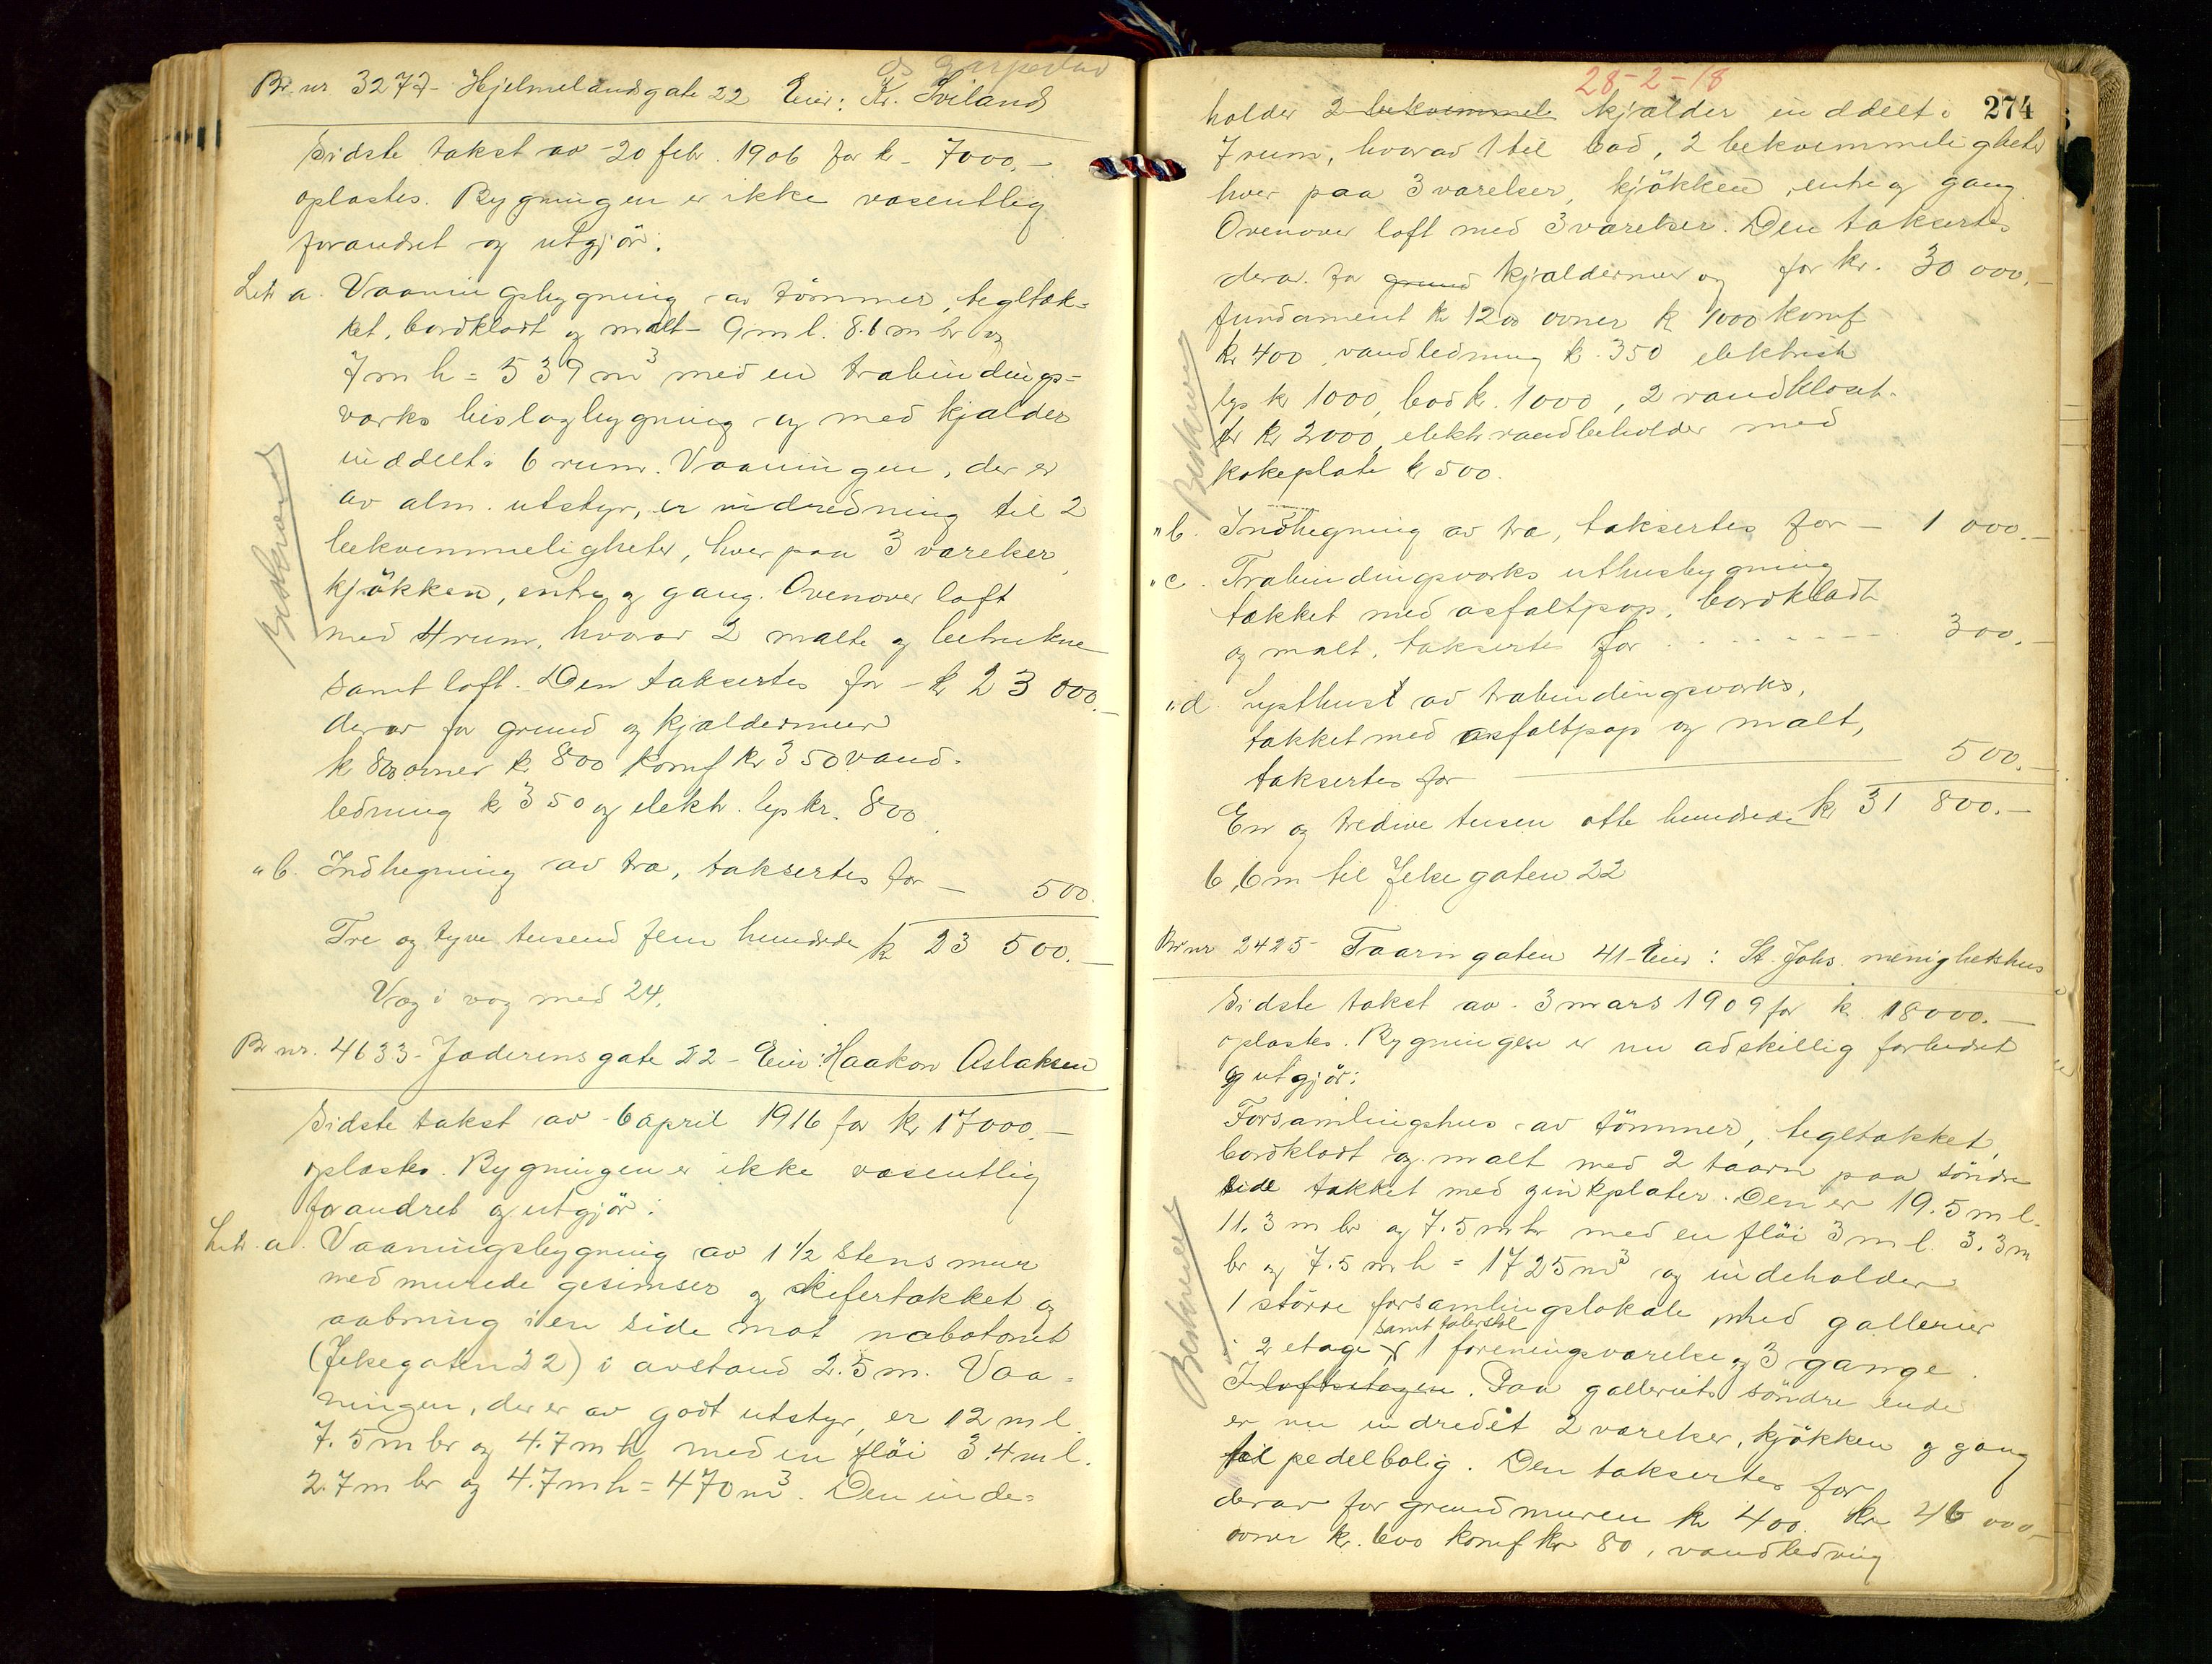 Br. nr 3277- Hjelmelandsgate 22 Eier: Kr. Sviland
Sidste takst av 20 febr. 1906 for kr. 7000.-
oplæstes. Bygningen er ikke væsentlig
forandret og utgjör:
Litr a. Vaaningsbygning av tömmer, tegltæk-
ket, bordklædt og malt- 9 m l. 8.6 m br og
7 m h = 539 m³ med en træbindings-
værks bislagbygning og med kjælder
inddelt i 6 rum. Vaaningen, der er
av alm. utstyr, er indredning til 2
bekvemmeligheter, hver paa 3 værelser,
kjökken, entre og gang. Ovenover loft
med 4 rum, hvorav 2 malte og betrukne
samt loft. Den takseres for - kr 23 000.-
derav for grund og kjældermur
kr 800 ovner kr 800 komf kr 350 vand-
ledning kr 350 og elektr. lys kr. 800
" b. Indhegning av træ, takseres for - 500.
Tre og tyve tusend fem hundrede kr 23 500.-
Væg i væg med 24.
Br nr. 4633- Jæderensgate 22 - Eier: Haakon Aslaksen
Sidste takst av 6 april 1916 for kr 17000.-
oplæstes. Bygningen er ikke væsentlig
forandret og utgjör:
Litr. a. Vaaningsbygning av 1 1/2 stens mur
med murede gesimser og skifertækket og
aabning i en side mot nabotomt
(Jekegaten 22) i avstand 2.5 m. Vaa-
ningen, der er av godt utstyr, er 12 m l
7.5 m br og 4.7 m h med en flöi 3.4 m l.
2.7 m br og 4.7 m h = 470 m³. Den inde-
Beskrevet
28-2-18
274
holder 2 bekvemmele kjælder inddelt i
7 rum, hvorav 1 til bad, 2 bekvemmeligheter
hver paa 3 værelser, kjökken, entre og gang.
Ovenover loft med 3 værelser. Den takseres
derav for grund kjældermur og for kr. 30 000.-
fundament kr 1200 ovner kr 1000 komf
kr 400 vandledning kr. 350 elektrisk
lys kr 1000, bad kr. 1000, 2 vandkloset-
ter kr 2000, elektr vandbeholder med
kokeplate kr 500.
" b. Indhegning av træ, takseres for - 1 000.-
" c. Træbindingsværks uthusbygning
tækket med asfaltpap, bordklædt
og malt, takseres for 300.-
" d. Lysthust av træbindingsværks,
tækket med asfaltpap og malt,
takseres for 500.-
En og tredive tusen otte hundrede kr 31 800.-
6,6 m til Jekegaten 22
Br nr 2425- Taarngaten 41- Eier: St. Johs. menighetshus
Sidste takst av 3 mars 1909 for kr. 18000.-
oplæstes. Bygningen er nu adskillig forbedret
og utgjör:
Forsamlingshus av tömmer, tegltækket,
bordklædt og malt med 2 taarn paa söndre
side tækket med zinkplater. Den er 19.5 m l.
11.3 m br og 7.5 m h med en flöi 3 m l. 3.3 m
br og 7.5 m h = 1725 m³ og indeholder
1 större forsamlingslokale med gallerier
samt talerstol
i 2 etage 1 foreningsværelse og 3 gange.
I loftsetagen. Paa galleriets söndre ende
er nu indredet 2 værelser, kjökken og gang
til pedelbolig. Den takseres for
derav for grundmuren kr 400. kr 46 000.-
ovner kr. 600 komf kr 80, vandledning
Beskrevet
Beskrevet